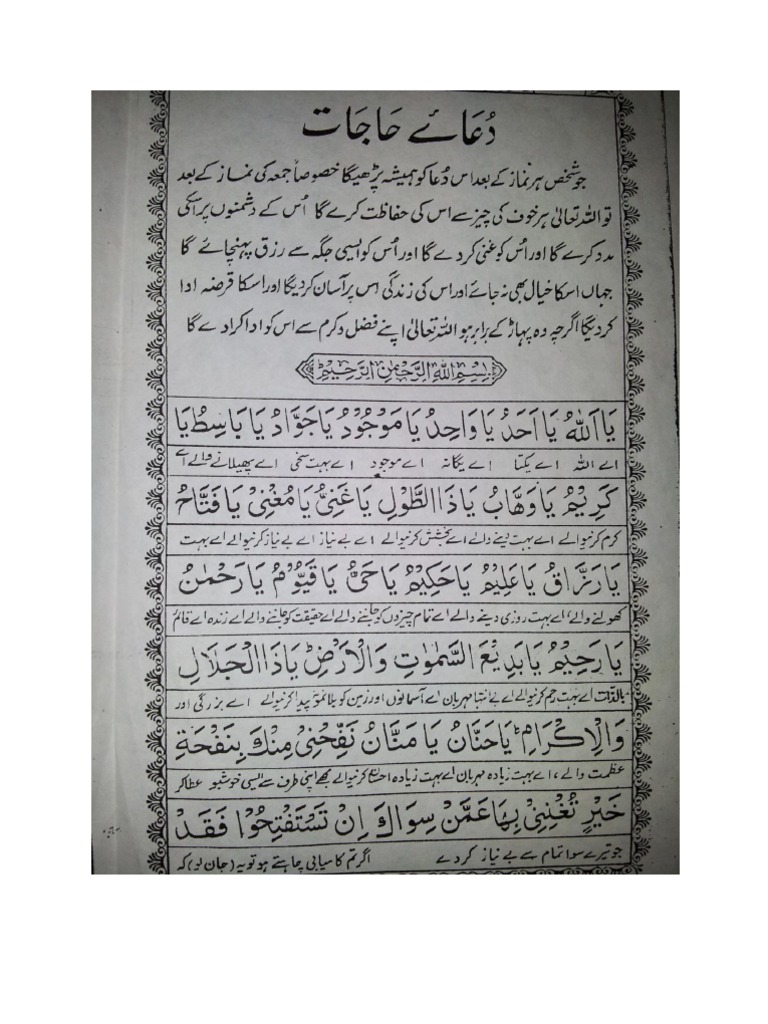 دُعَائے حَاجَات
جو شخص ہر نماز کے بعد اس دُعا کو ہمیشہ پڑھیگا خصوصاً جمعہ کی نماز کے بعد
تو اللہ تعالیٰ ہر خوف کی چیز سے اس کی حفاظت کرے گا اُس کے دشمنوں پر اسکی
مدد کرے گا اور اُس کو غنی کردے گا اور اُس کو ایسی جگہ سے رزق پہنچائے گا
جہاں اسکا خیال بھی نہ جائے اور اس کی زندگی اس پر آسان کردیگا اور اسکا قرضہ ادا
کردیگا اگرچہ وہ پہاڑ کے برابر ہو اللہ تعالیٰ اپنے فضل و کرم سے اس کو ادا کرادے گا
بِسْمِ اللهِ الرَّحْمٰنِ الرَّحِيْمِ
يَا اَللّٰهُ يَا اَحَدُ يَا وَاحِدُ يَا مَوْجُوْدُ يَا جَوَّادُ يَا بَاسِطُ يَا
اے اللہ اے یکتا اے یگانہ اے موجود اے بہت سخی اے پھیلانے والے اے
كَرِيْمُ يَا وَهَّابُ يَا ذَا الطَّوْلِ يَا غَنِيُّ يَا مُغْنِيْ يَا فَتَّاحُ
کرم کرنیوالے اے بہت دینے والے اے بخشش کرنیوالے اے بے نیاز اے بے نیاز کرنیوالے اے بہت
يَا رَزَّاقُ يَا عَلِيْمُ يَا حَكِيْمُ يَا حَيُّ يَا قَيُّوْمُ يَا رَحْمٰنُ
کھولنے والے، اے بہت روزی دینے والے اے تمام چیزوں کو جاننے والے اے حقیقت کو جاننے والے اے زندہ اے قائم
يَا رَحِيْمُ يَا بَدِيْعَ السَّمٰوٰتِ وَالْاَرْضِ يَا ذَا الْجَلَالِ
بالذات اے بہت رحم کرنیوالے اے بے انتہا مہربان اے آسمانوں اور زمین کو بلا نمونہ پیدا کرنیوالے اے بزرگی اور
وَالْاِكْرَامِ يَا حَنَّانُ يَا مَنَّانُ نَفِّحْنِيْ مِنْكَ بِنَفْحَةِ
عظمت والے، اے بہت زیادہ مہربان اے بہت زیادہ احسان کرنیوالے مجھے اپنی طرف سے ایسی خوشبو عطا کر
خَيْرٍ تُغْنِنِيْ بِهَا عَمَّنْ سِوَاكَ اِنْ تَسْتَفْتِحُوْا فَقَدْ
جو تیرے سوا تمام سے بے نیاز کردے اگر تم کامیابی چاہتے ہو تو یہ (جان لو) کہ